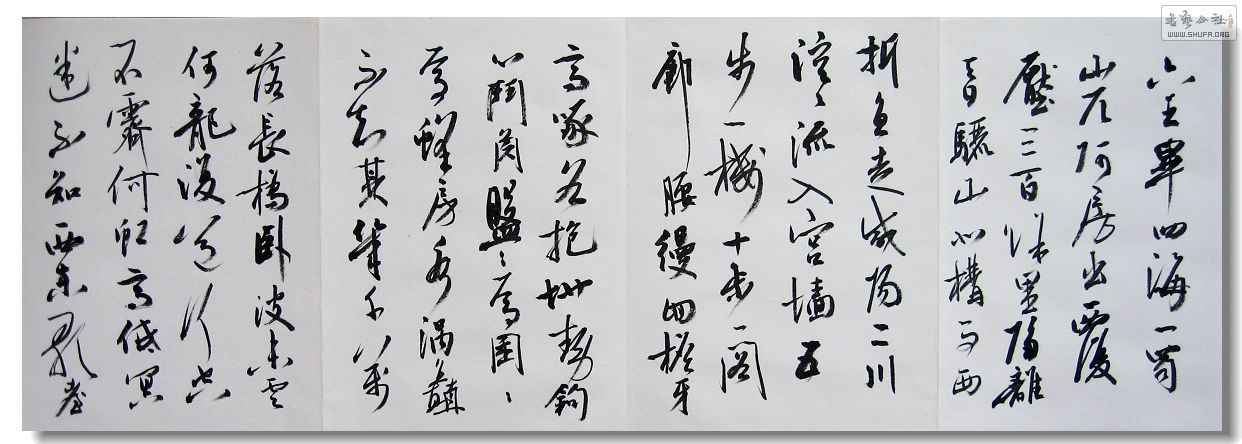 六王畢四海一蜀
山兀阿房出覆
壓三百餘里隔離
天日驪山北構而西
折直走咸陽二川
溶〻流入宮墻五
步一樓十步一閣
廊腰縵回檐牙
高啄各抱地勢鉤
心鬥角盤〻焉囷〻
焉蜂房水渦矗
不知其幾千萬
落長橋臥波未雲
何龍復道行空
不霽何虹高低冥
迷不知西東歌臺
書藝公社
WWW.SHUFA.ORG